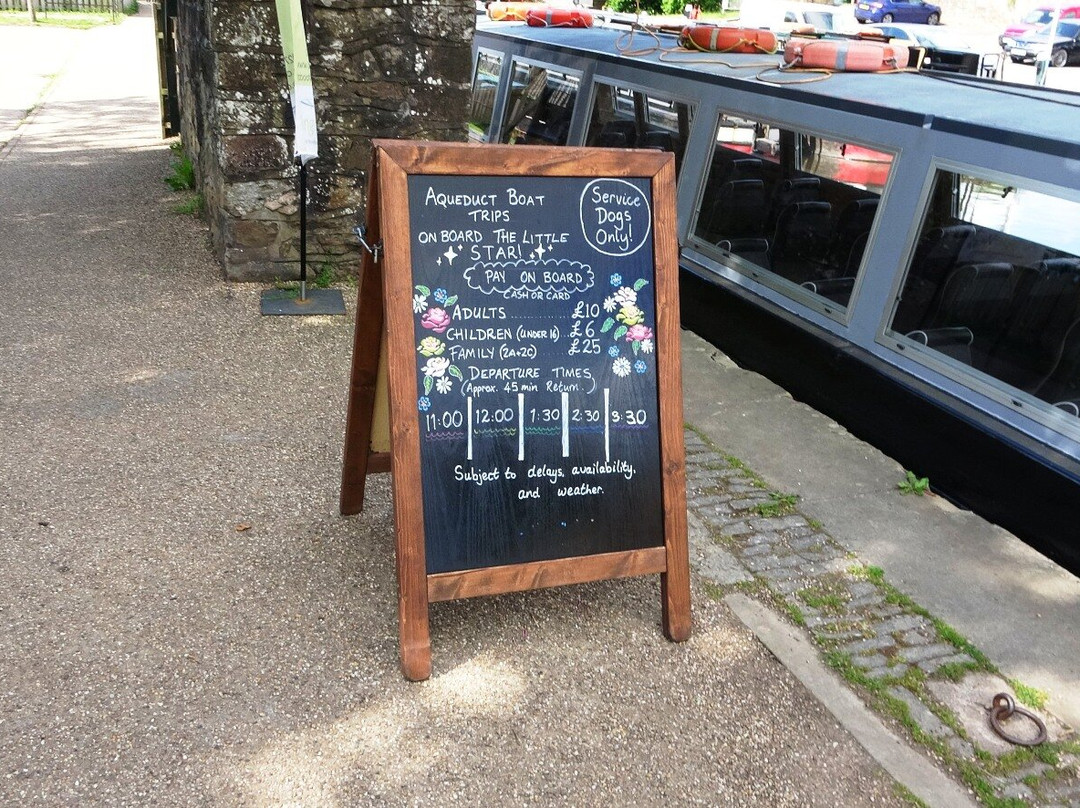 AQUEDUCT BOAT
TRIPS
Service
Dogs
Only!
ON BOARD THE LITTLE
STAR!
PAY ON BOARD
CASH OR CARD
ADULTS ............ £10
CHILDREN (UNDER 16)... £6
FAMILY (2A+2C) £25
DEPARTURE TIMES
(Approx. 45 min Return.)
11:00 12:00 1:30 2:30 3:30
Subject to delays, availability,
and weather.